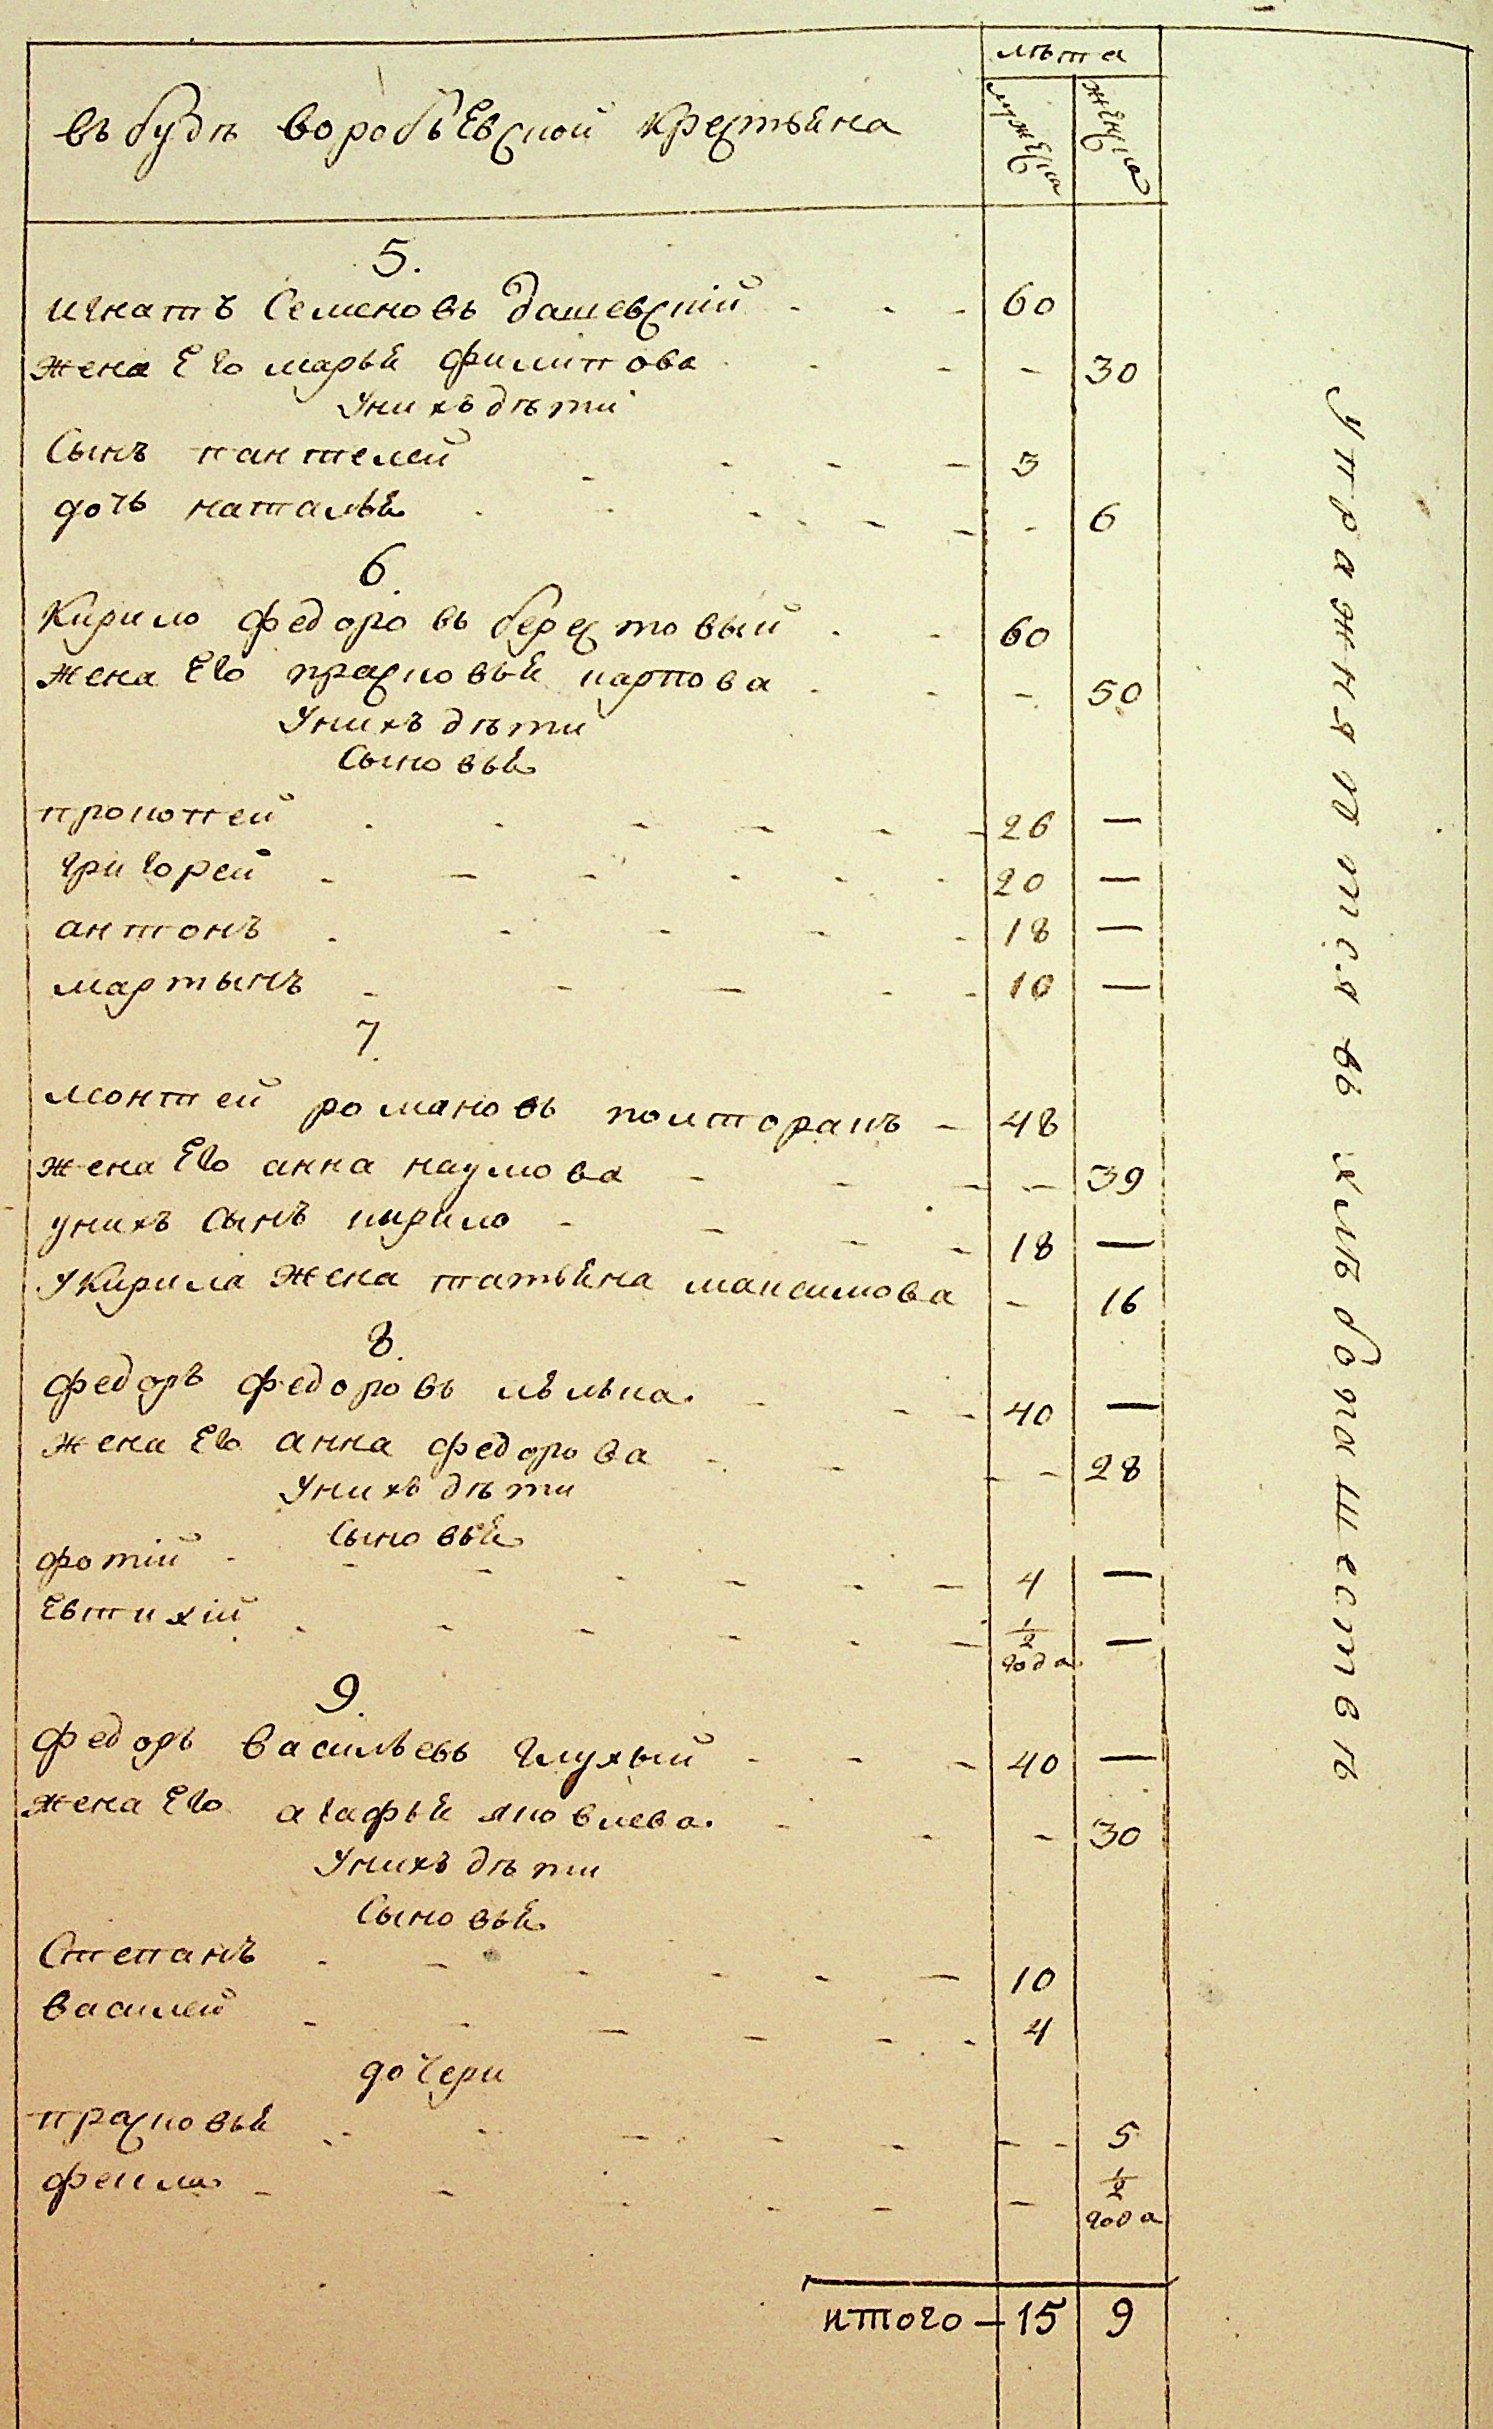 лѣта
въ будѣ воробьевской крестьяна
мужеска
женска
5.
игнатъ Семеновъ дашевскій 60
жена Его марья филипова 30
Унихъ дѣти
Сынъ пантелей 3
дочь наталья 6
6.
Кирило федоровъ берестовый 60
жена Его прасковья карпова 50
Унихъ дѣти
Сыновья
прокопей 26 —
григорей 20 —
антонъ 18 —
мартынъ 10 —
7.
леонтей романовъ полторакъ 48
жена Его анна наумова 39
унихъ Сынъ кирило 18 —
У Кирила жена татьяна максимова 16
8.
федоръ федоровъ лѣлька 40 —
жена Его анна федорова 28
Унихъ дѣти
Сыновья
фотій 4 —
Евтихій 1/2 года —
9.
федоръ васильевъ глухый 40 —
жена Его агафья яковлева 30
Унихъ дѣти
Сыновья
Степанъ 10
василей 4
дочери
прасковья 5
фекла 1/2 года
итого — 15 9
упражняются въ хлебопашествѣ